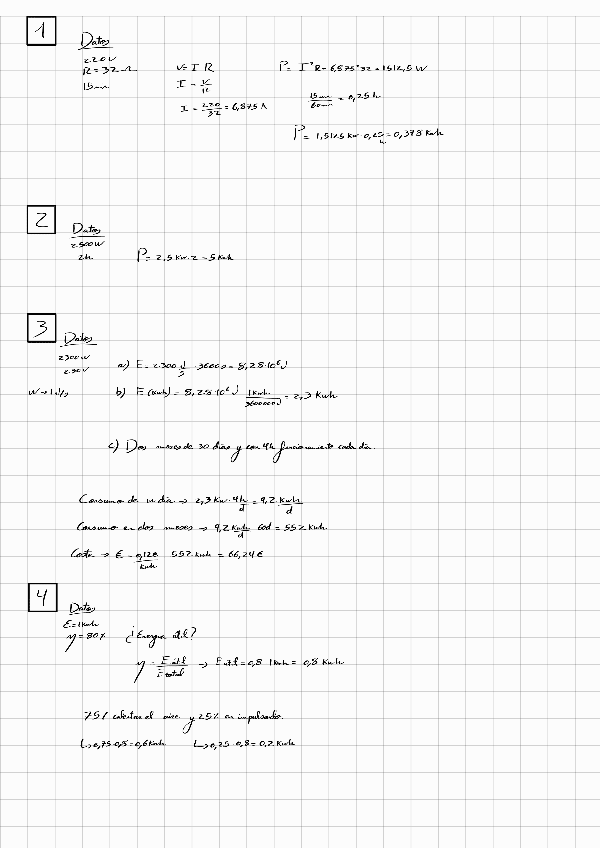 1
Datos
220V
R=32Ω
15min
V=I R
I = V/R
I = 220/32 = 6,875 A
P= I²R= 6,875²·32 = 1512,5 W
15min/60min = 0,25 h
P= 1,5125 Kw·0,25h = 0,378 Kwh
2
Datos
2.500W
2h
P= 2,5 Kw·2 = 5 Kwh
3
Datos
2300W
230V
W→1J/s
a) E= 2.300 J/s · 3600s = 8,28·10⁶J
b) E(Kwh) = 8,28·10⁶J 1Kwh/3600000J = 2,3 Kwh
c) Dos meses de 30 días y con 4h funcionamiento cada día.
Consumo de un día → 2,3 Kw·4h/d = 9,2 Kwh/d
Consumo en dos meses → 9,2 Kwh/d 60d = 552 Kwh
Coste → € = 0,12€/Kwh 552 Kwh = 66,24€
4
Datos
E=1Kwh
η=80%
¿Energía útil?
η = E útil/E total → E útil = 0,8·1Kwh = 0,8 Kwh
75% calentar el aire y 25% en impulsarlo.
↳0,75·0,8=0,6Kwh ↳0,25·0,8=0,2 Kwh